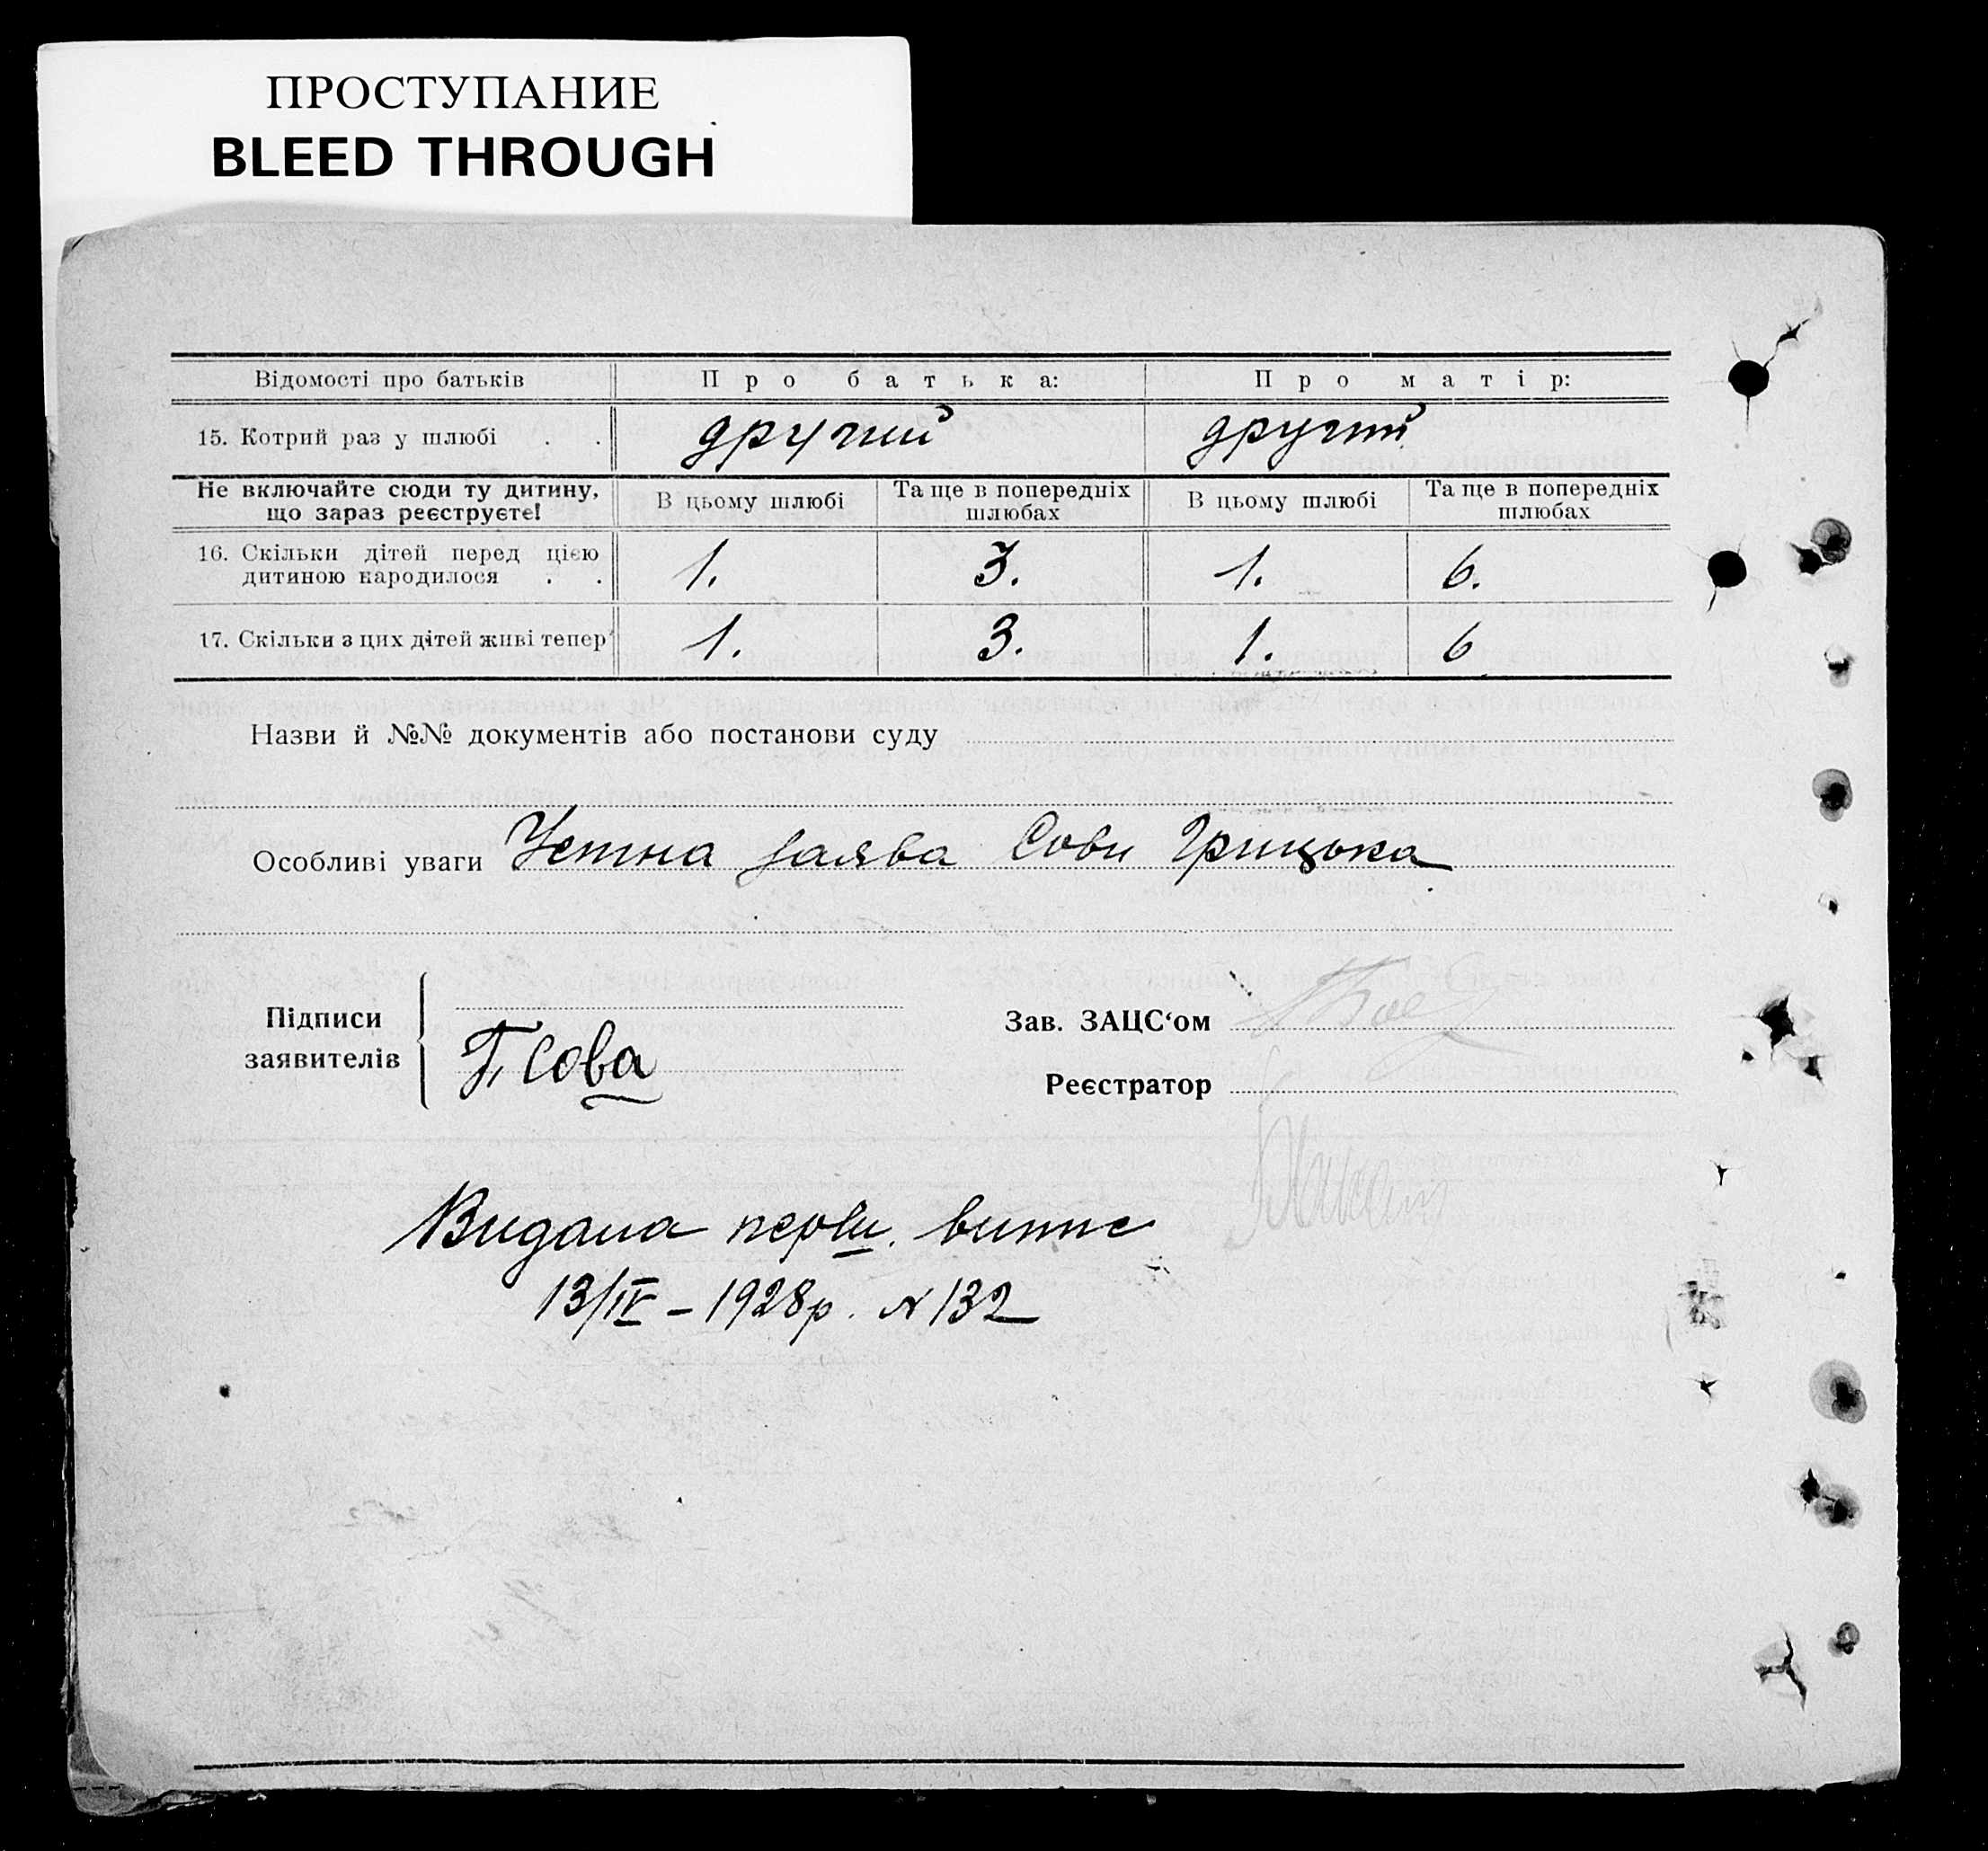 ПРОСТУПАНИЕ
BLEED THROUGH
Відомості про батьків Про батька: Про матір:
15. Котрий раз у шлюбі . . другий другий
Не включайте сюди ту дитину, що зараз реєструєте! В цьому шлюбі Та ще в попередніх шлюбах В цьому шлюбі Та ще в попередніх шлюбах
16. Скільки дітей перед цією
дитиною народилося . . 1. 3. 1. 6.
17. Скільки з цих дітей живі тепер 1. 3. 1. 6
Назви й №№ документів або постанови суду
Особливі уваги Устна заява Сови Грицька
Підписи
заявителів
Г. Сова
Зав. ЗАЦС‘ом
Реєстратор
Видана перви. випис
13/IV – 1928р. № 132